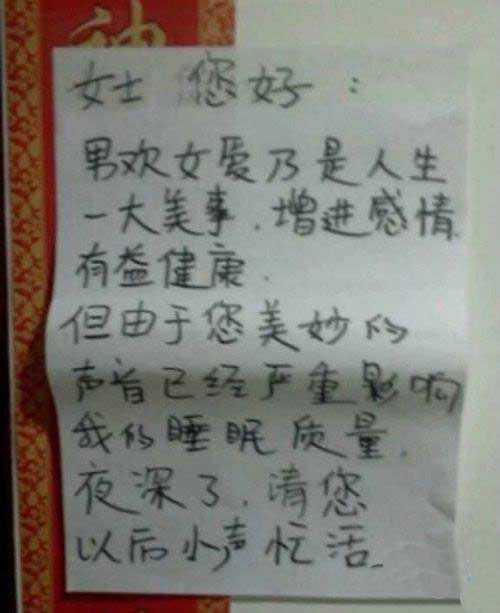 神
女士 您好：
男欢女爱乃是人生
一大美事，增进感情，
有益健康．
但由于您美妙的
声音已经严重影响
我的睡眠质量．
夜深了，请您
以后小声忙活．